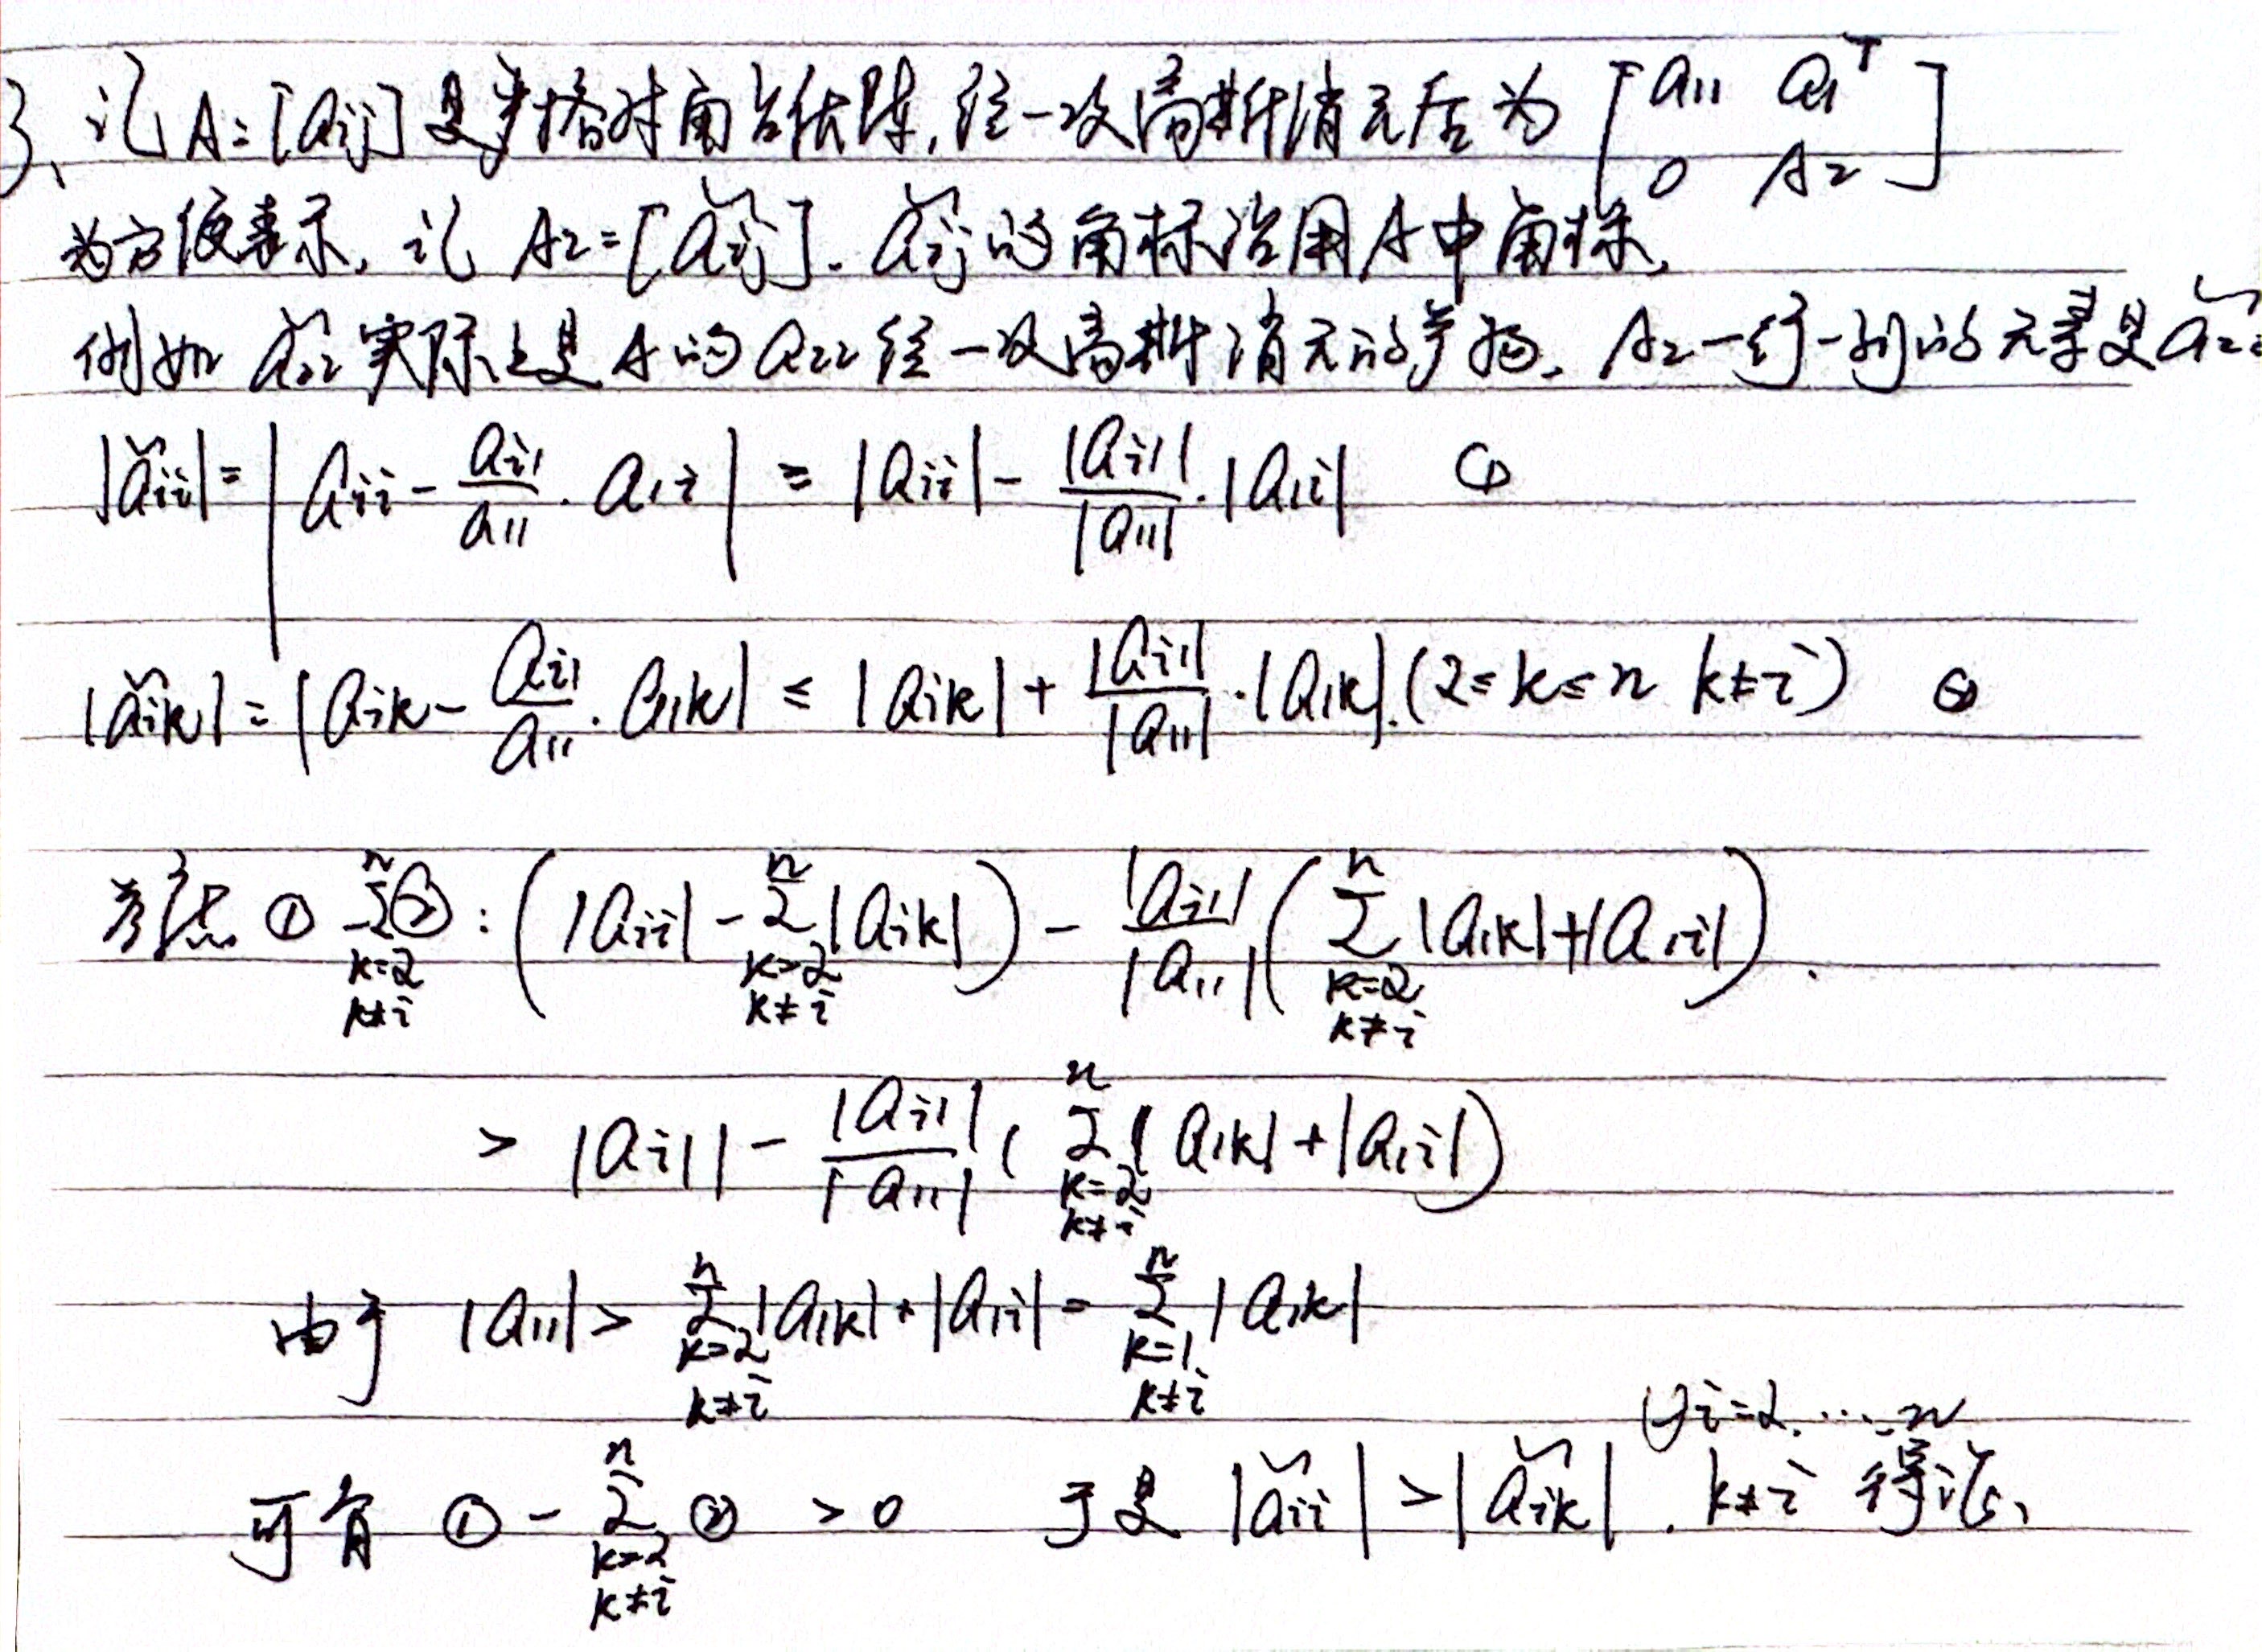 3、记 A=[aij] 是严格对角占优阵,经一次高斯消元后为 [a11 a1^T; 0 A2]
为方便表示,记 A2=[ǎij]. ǎij的角标沿用A中角标,
例如 ǎ22实际上是A的a22经一次高斯消元的产物. A2一行一列的元素是ǎ22
|ǎii|=|aii - ai1/a11 · a1i| ≥ |aii| - |ai1|/|a11| · |a1i| ①
|ǎik|=|aik - ai1/a11 · a1k| ≤ |aik| + |ai1|/|a11| · |a1k|. (2≤k≤n k≠i) ②
考虑 ① -∑_{k=2, k≠i}^{n} ②: (|aii| - ∑_{k=2, k≠i}^{n} |aik|) - |ai1|/|a11| (∑_{k=2, k≠i}^{n} |a1k| + |a1i|).
> |ai1| - |ai1|/|a11| (∑_{k=2, k≠i}^{n} |a1k| + |a1i|)
由于 |a11| > ∑_{k=2, k≠i}^{n} |a1k| + |a1i| = ∑_{k=1, k≠i}^{n} |a1k|
∀i=2,…,n
可有 ① - ∑_{k=2, k≠i}^{n} ② > 0 于是 |ǎii| > |ǎik|. k≠i 得证.